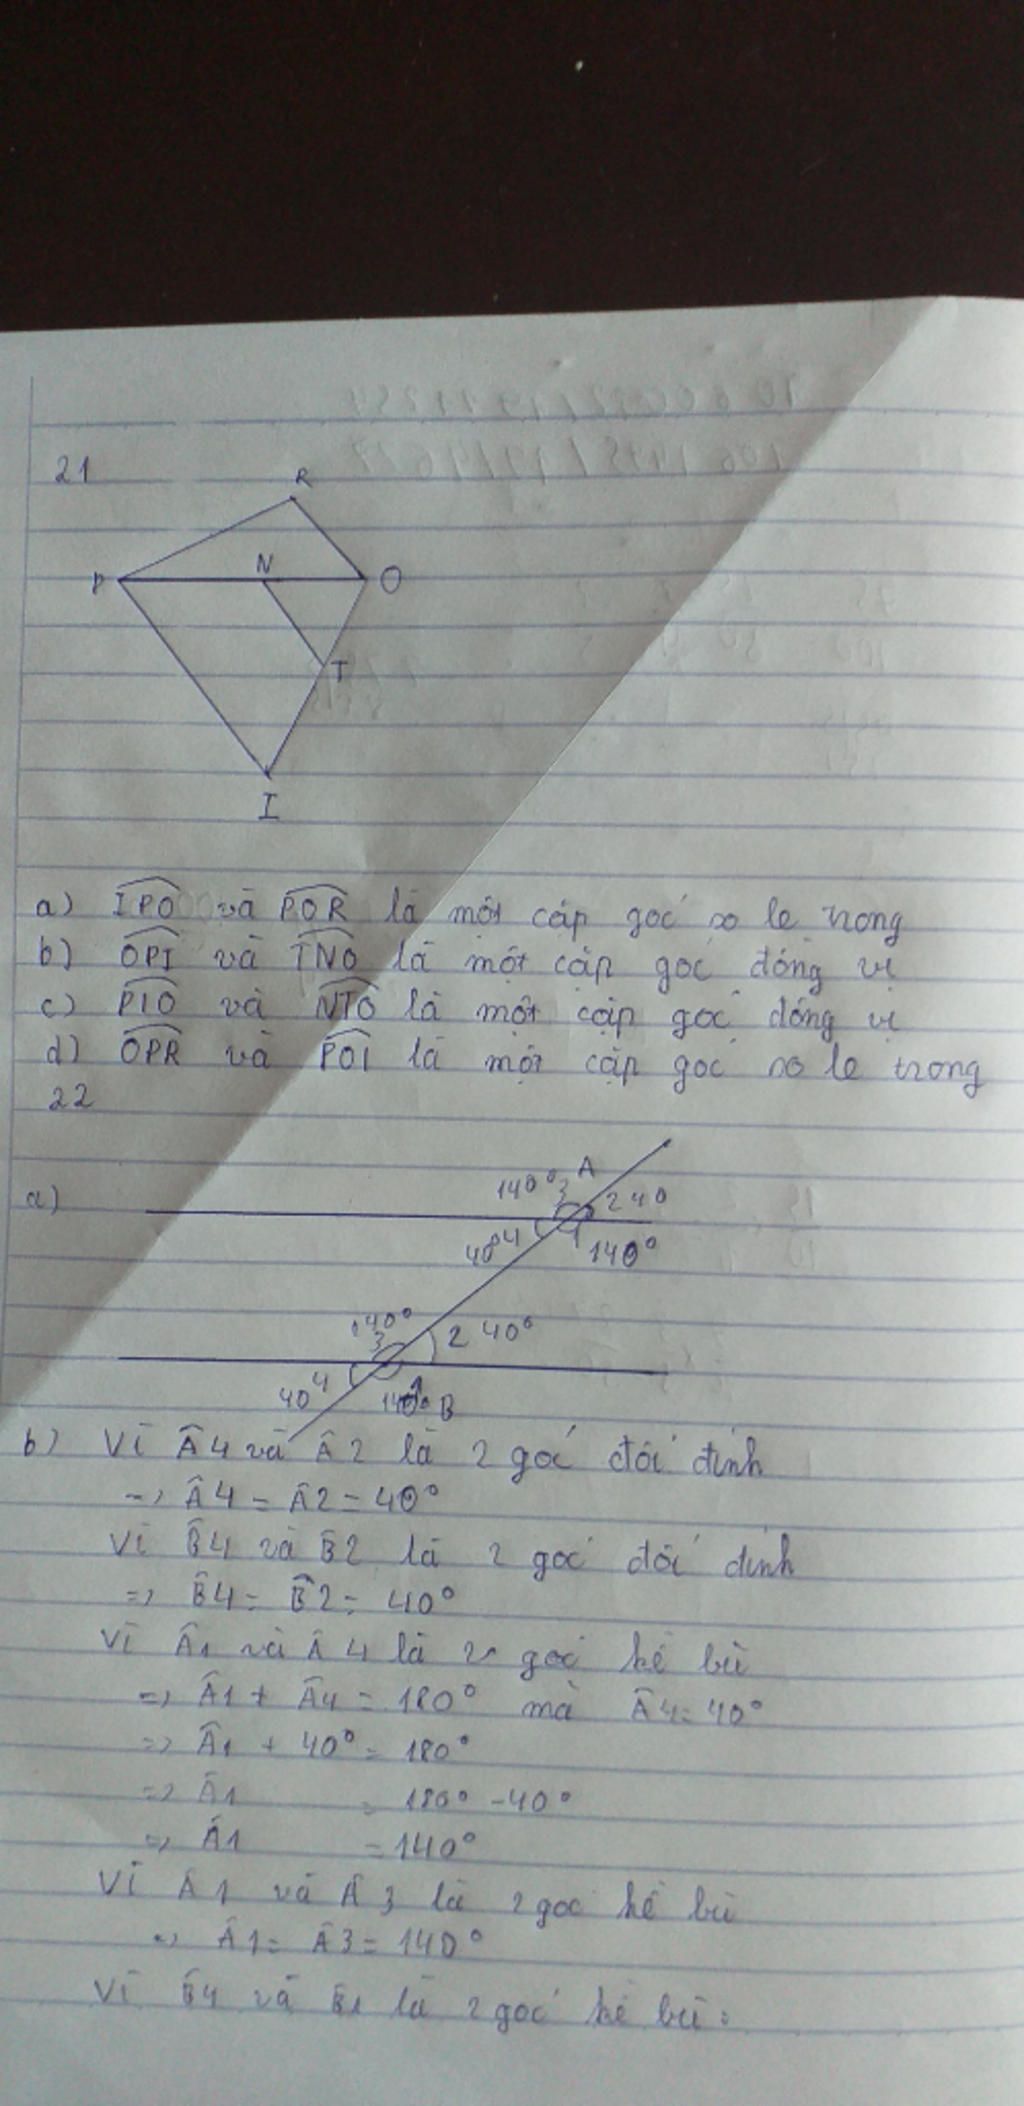 21
R
P
N
O
T
I
a) IPO và POR là một cặp góc so le trong
b) OPI và TNO là một cặp góc đồng vị
c) PIO và NTO là một cặp góc đồng vị
d) OPR và POI là một cặp góc so le trong
22
a)
A
140° 3
2 40
40° 4
1 140°
140°
3
2 40°
40 4
140° B
b) Vì Â4 và Â2 là 2 góc đối đỉnh
=> Â4 = Â2 = 40°
Vì B̂4 và B̂2 là 2 góc đối đỉnh
=> B̂4 = B̂2 = 40°
Vì Â1 và Â4 là 2 góc kề bù
=> Â1 + Â4 = 180° mà Â4 = 40°
=> Â1 + 40° = 180°
=> Â1 = 180° - 40°
=> Â1 = 140°
Vì Â1 và Â3 là 2 góc kề bù
=> Â1 = Â3 = 140°
Vì B̂4 và B̂1 là 2 góc kề bù: